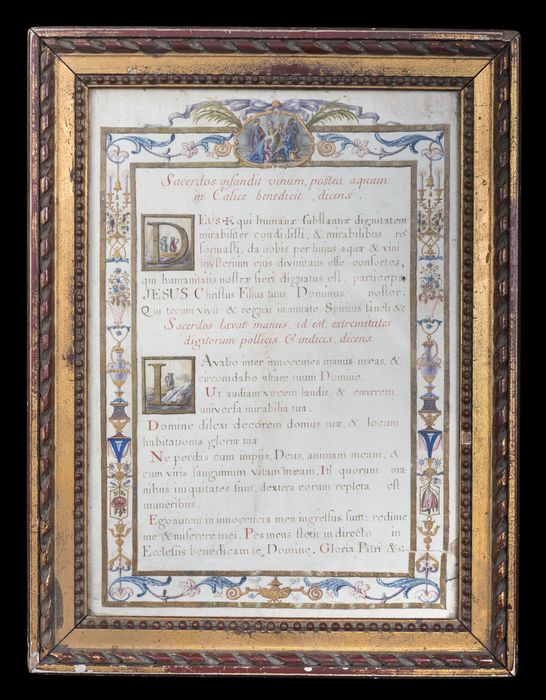 Sacerdos infundit vinum, postea aquam
in Calice benedicit, dicens.
DEUS ✠ qui humanæ substantiæ dignitatem
mirabiliter condidisti, & mirabilibus re
formasti, da nobis per hujus aquæ & vini
mysterium ejus divinitatis esse consortes,
qui humanitatis nostræ fieri dignatus est, particeps
JESUS Christus Filius tuus Dominus noster:
Qui tecum vivit & regnat in unitate Spiritus sancti &c
Sacerdos lavat manus, id est, extremitates
digitorum pollicis & indicis, dicens.
LAvabo inter innocentes manus meas, &
circumdabo altare tuum Domine.
Ut audiam vocem laudis, & enarrem
universa mirabilia tua.
Domine dilexi decorem domus tuæ, & locum
habitationis gloriæ tuæ
Ne perdas cum impiis, Deus, animam meam, &
cum viris sanguinum vitam meam, In quorum ma
nibus iniquitates sunt, dextera eorum repleta est
muneribus.
Ego autem in innocencia mea ingressus sum: redime
me & miserere mei. Pes meus stetit in directo in
Ecclesiis benedicam te, Domine. Gloria Patri &c: